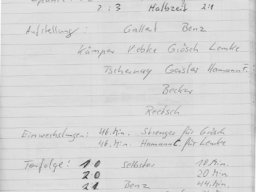 7:3 Halbzeit 2:1
Aufstellung: Gallert Benz
Kämper Vebke Grösch Lemke
Tschernay Geisler Hamann F.
Becker
Raetsch
Einwechslungen: 46. Min. Strenges für Grösch
46. Min. Hamann C. für Lemke
Torfolge: 1:0 Selbsttor 18. Min.
2:0 20 Min
2:1 Benz 44. Min.